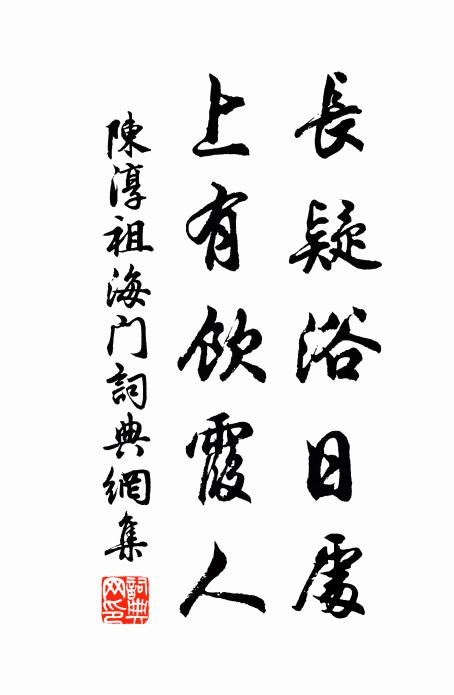 長疑浴日處
上有飲霞人
陳淳祖海门詞典網集
詞典
网印